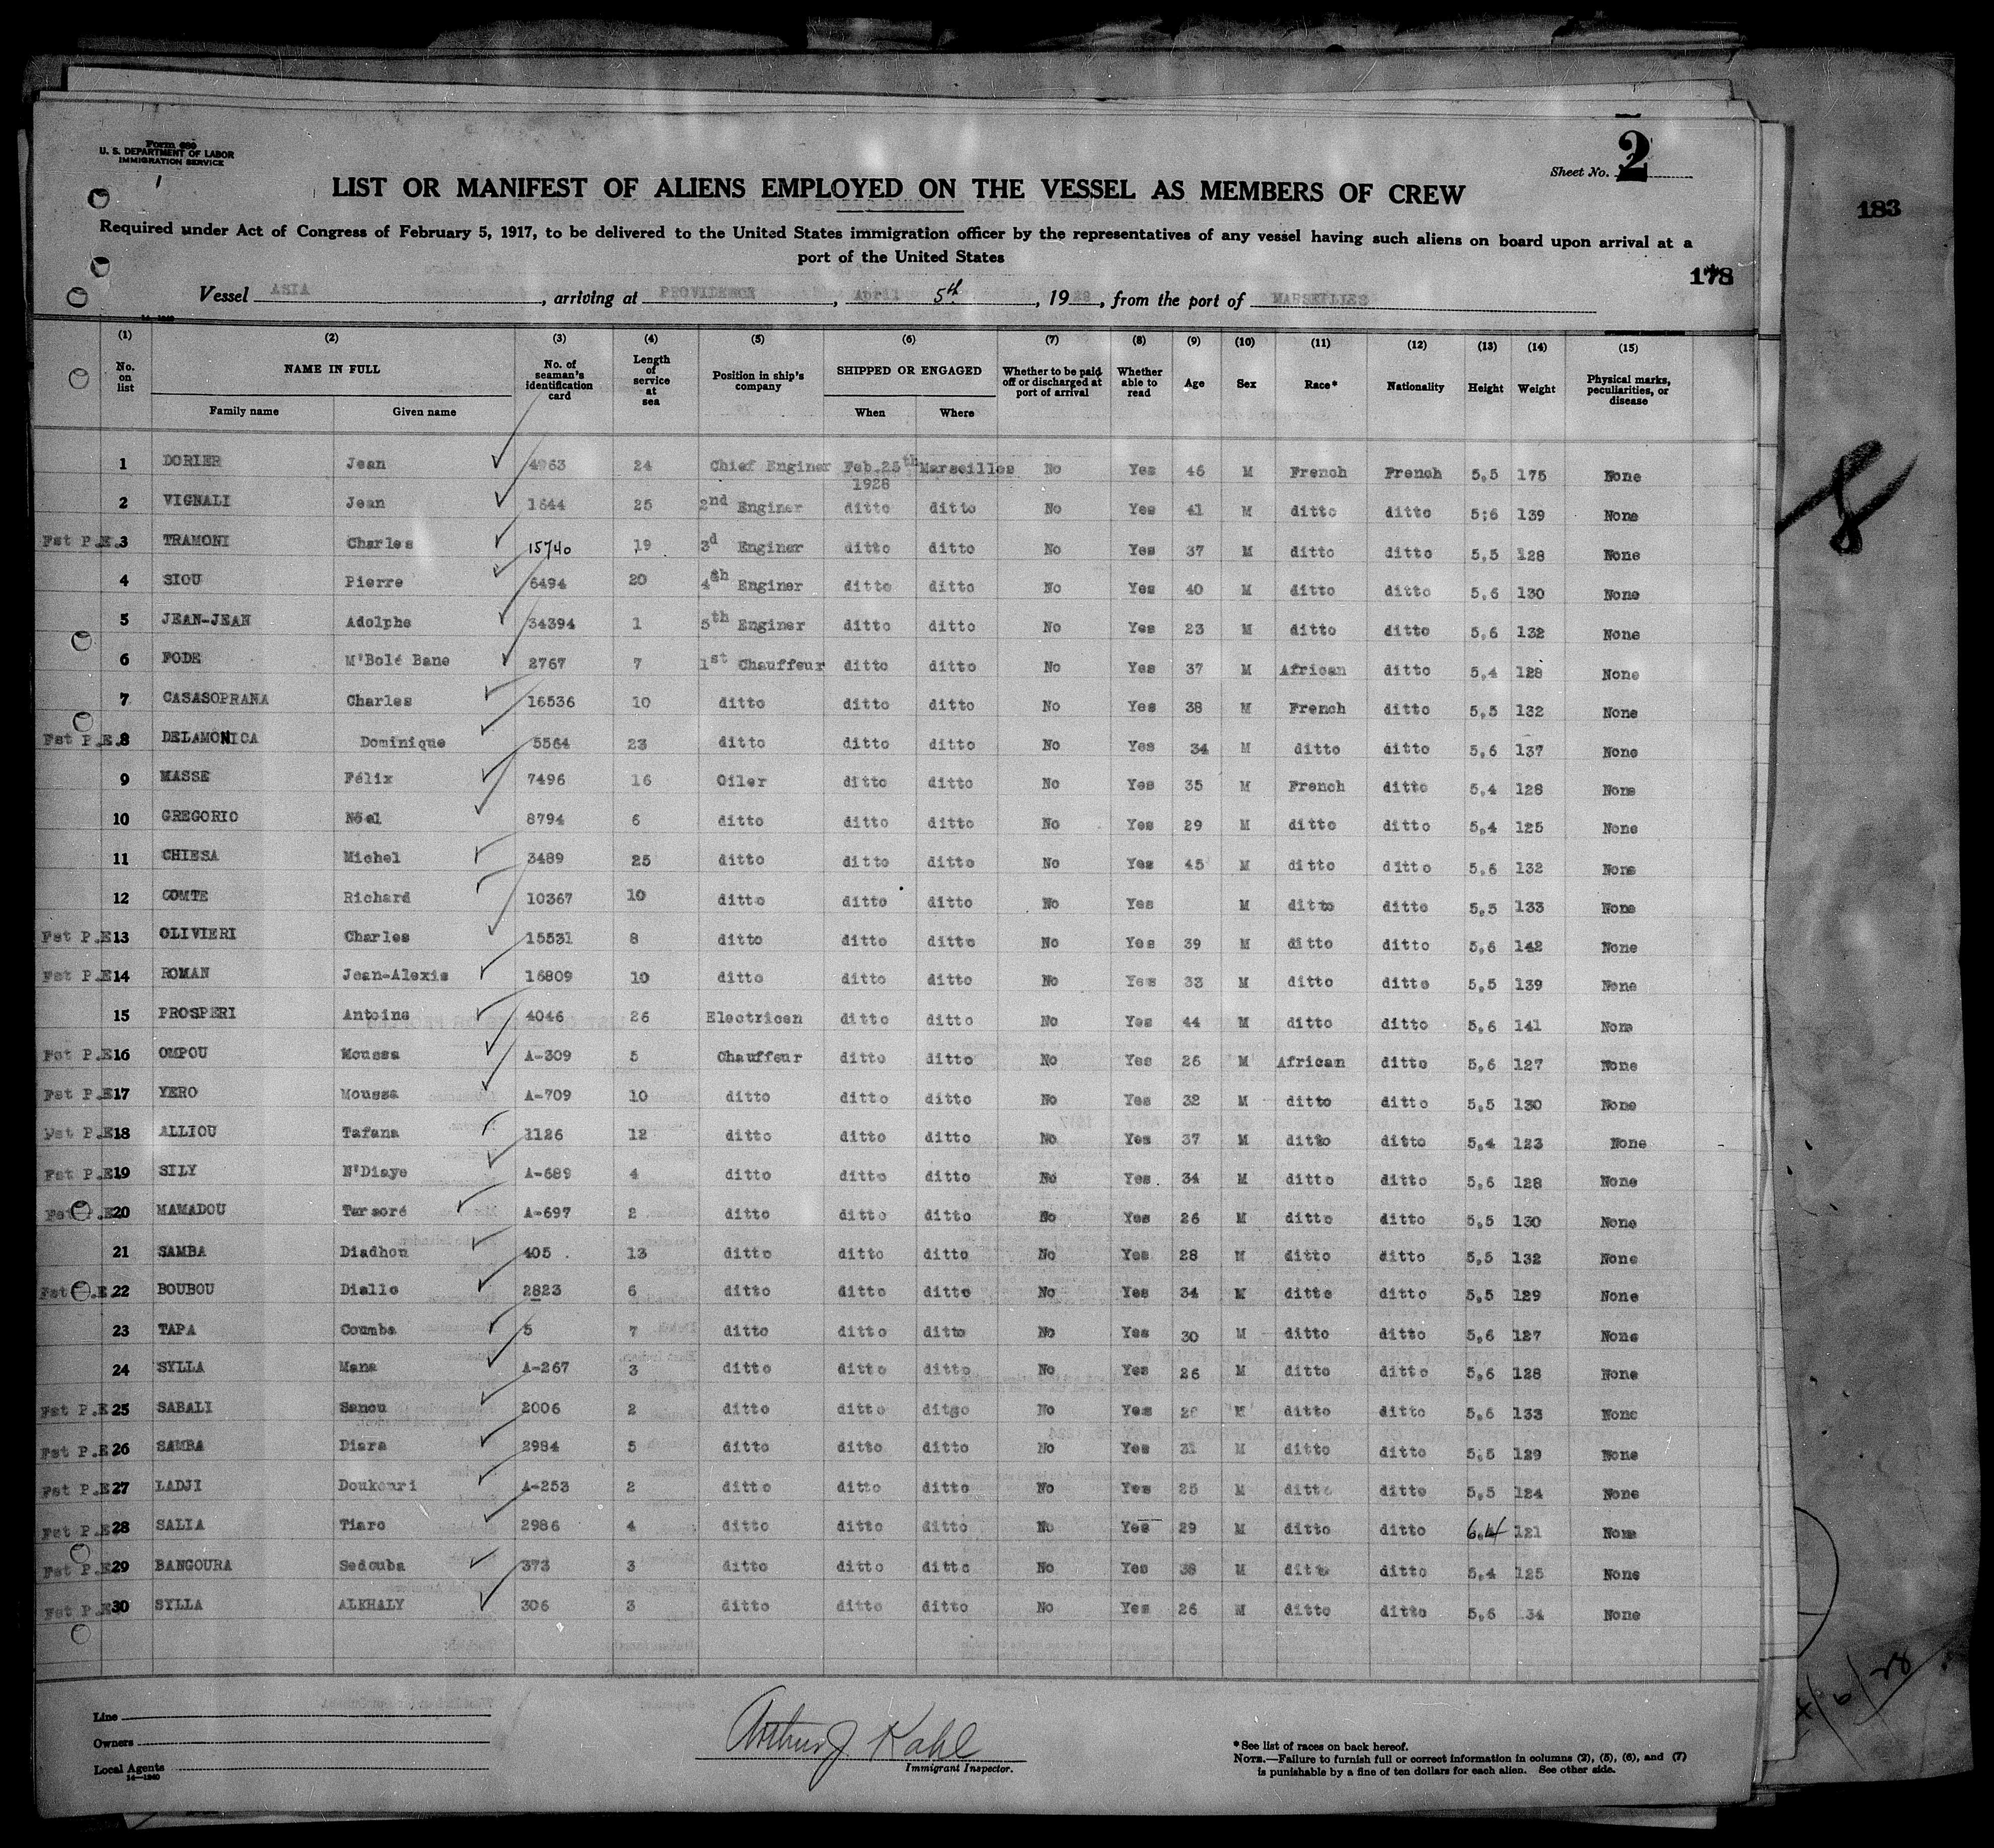 Form 689
U. S. DEPARTMENT OF LABOR
IMMIGRATION SERVICE
Sheet No. 2
LIST OR MANIFEST OF ALIENS EMPLOYED ON THE VESSEL AS MEMBERS OF CREW
183
Required under Act of Congress of February 5, 1917, to be delivered to the United States immigration officer by the representatives of any vessel having such aliens on board upon arrival at a
port of the United States
178
Vessel ASIA, arriving at PROVIDENCE, April 5th, 1928, from the port of MARSEILLES
(1) (2) (3) (4) (5) (6) (7) (8) (9) (10) (11) (12) (13) (14) (15)
No. on list NAME IN FULL Family name Given name No. of seaman's identification card Length of service at sea Position in ship's company SHIPPED OR ENGAGED When Where Whether to be paid off or discharged at port of arrival Whether able to read Age Sex Race* Nationality Height Weight Physical marks, peculiarities, or disease
1 DORIER Jean 4963 24 Chief Enginer Feb.25th 1928 Marseilles No Yes 46 M French French 5,5 175 None
2 VIGNALI Jean 1644 25 2nd Enginer ditto ditto No Yes 41 M ditto ditto 5;6 139 None
Fst P.E. 3 TRAMONI Charles 15740 19 3d Enginer ditto ditto No Yes 37 M ditto ditto 5,5 128 None
4 SIOU Pierre 6494 20 4th Enginer ditto ditto No Yes 40 M ditto ditto 5,6 130 None
5 JEAN-JEAN Adolphe 34394 1 5th Enginer ditto ditto No Yes 23 M ditto ditto 5,6 132 None
6 FODE M'Bolé Bane 2767 7 1st Chauffeur ditto ditto No Yes 37 M African ditto 5,4 128 None
7 CASASOPRANA Charles 16536 10 ditto ditto ditto No Yes 38 M French ditto 5,5 132 None
Fst P.E. 8 DELAMONICA Dominique 5564 23 ditto ditto ditto No Yes 34 M ditto ditto 5,6 137 None
9 MASSE Félix 7496 16 Oiler ditto ditto No Yes 35 M French ditto 5,4 128 None
10 GREGORIO Nöel 8794 6 ditto ditto ditto No Yes 29 M ditto ditto 5,4 125 None
11 CHIESA Michel 3489 25 ditto ditto ditto No Yes 45 M ditto ditto 5,6 132 None
12 COMTE Richard 10367 10 ditto ditto ditto No Yes M ditto ditto 5,5 133 None
Fst P.E 13 OLIVIERI Charles 15531 8 ditto ditto ditto No Yes 39 M ditto ditto 5,6 142 None
Fst P.E 14 ROMAN Jean-Alexis 16809 10 ditto ditto ditto No Yes 33 M ditto ditto 5,5 139 None
15 PROSPERI Antoine 4046 26 Electricen ditto ditto No Yes 44 M ditto ditto 5,6 141 None
Fst P.E 16 OMPOU Moussa A-309 5 Chauffeur ditto ditto No Yes 26 M African ditto 5,6 127 None
Fst P.E 17 YERO Moussa A-709 10 ditto ditto ditto No Yes 32 M ditto ditto 5,5 130 None
Fst P.E 18 ALLIOU Tafana 1126 12 ditto ditto ditto No Yes 37 M ditto ditto 5,4 123 None
Fst P.E 19 SILY N'Diaye A-689 4 ditto ditto ditto No Yes 34 M ditto ditto 5,6 128 None
Fst P.E 20 MAMADOU Tarsoré A-697 2 ditto ditto ditto No Yes 26 M ditto ditto 5,5 130 None
21 SAMBA Diadhou 405 13 ditto ditto ditto No Yes 28 M ditto ditto 5,5 132 None
Fst P.E. 22 BOUBOU Diallo 2823 6 ditto ditto ditto No Yes 34 M ditto ditto 5,5 129 None
23 TAPA Coumba 5 7 ditto ditto ditto No Yes 30 M ditto ditto 5,6 127 None
24 SYLLA Mana A-267 3 ditto ditto ditto No Yes 26 M ditto ditto 5,6 128 None
Fst P.E 25 SABALI Sanou 2006 2 ditto ditto ditgo No Yes M ditto ditto 5,6 133 None
Fst P.E 26 SAMBA Diara 2984 5 ditto ditto ditto No Yes 31 M ditto ditto 5,5 129 None
Fst P.E 27 LADJI Doukouri A-253 2 ditto ditto ditto No Yes 25 M ditto ditto 5,5 124 None
Fst P.E 28 SALIA Tiaro 2986 4 ditto ditto ditto No Yes 29 M ditto ditto 6.4 121 None
Fst P.E 29 BANGOURA Sedouba 373 3 ditto ditto ditto No Yes 38 M ditto ditto 5,4 125 None
Fst P.E 30 SYLLA ALKHALY 306 3 ditto ditto ditto No Yes 26 M ditto ditto 5,6 134 None
Line
Owners
Local Agents
14—1240
Arthur J Kahl
Immigrant Inspector.
*See list of races on back hereof.
NOTE.—Failure to furnish full or correct information in columns (2), (5), (6), and (7)
is punishable by a fine of ten dollars for each alien. See other side.
8
4/6/28